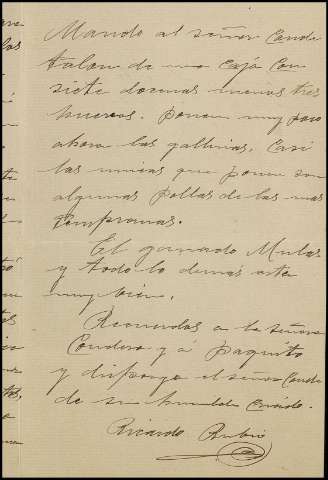 Mando al señor Conde
talon de una caja con
siete docenas menos tres
huevos. ponen muy poco
ahora las gallinas. Casi
las unicas que ponen son
algunas pollas de las mas
tempranas.
El ganado Mulas
y todo lo demas esta
muy bien.
Recuerdos a la señora
Condesa y á paquito
y disponga el señor Conde
de su humilde Criado.
Ricardo Rubio